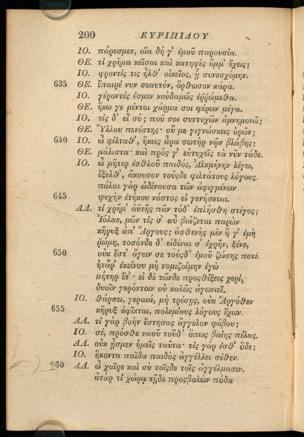 200 ΕΥΡΙΠΙΔΟΥ
ΙΟ. πάρεσμεν, οἵα δή γ' ἐμοῦ παρουσία.
ΘΕ. τί χρῆμα κεῖσαι καὶ κατηφὲς ὄμμ' ἔχεις;
ΙΟ. φροντίς τις ἦλθ' οἰκεῖος, ᾗ συνεσχόμην.
635 ΘΕ. ἔπαιρέ νυν σεαυτόν, ὄρθωσον κάρα.
ΙΟ. γέροντές ἐσμεν κοὐδαμῶς ἐρρώμεθα.
ΘΕ. ἥκω γε μέντοι χάρμα σοι φέρων μέγα.
ΙΟ. τίς δ' εἶ σύ; ποῦ σοι συντυχὼν ἀμνημονῶ;
ΘΕ. Ὕλλου πενέστης· οὔ με γιγνώσκεις ὁρῶν;
640 ΙΟ. ὦ φίλταθ', ἥκεις ἆρα σωτὴρ νῷν βλάβης;
ΘΕ. μάλιστα· καὶ πρός γ' εὐτυχεῖς τὰ νῦν τάδε.
ΙΟ. ὦ μῆτερ ἐσθλοῦ παιδός, Ἀλκμήνην λέγω,
ἔξελθ', ἄκουσον τοῦδε φιλτάτους λόγους.
πάλαι γὰρ ὠδίνουσα τῶν ἀφιγμένων
645 ψυχὴν ἐτήκου νόστος εἰ γενήσεται.
ΑΛ. τί χρῆμ' ἀϋτῆς πᾶν τόδ' ἐπλήσθη στέγος;
Ἰόλαε, μῶν τίς σ' αὖ βιάζεται παρὼν
κῆρυξ ἀπ' Ἄργους; ἀσθενὴς μὲν ἥ γ' ἐμὴ
ῥώμη, τοσόνδε δ' εἰδέναι σ' ἐχρῆν, ξένε,
650 οὐκ ἔστ' ἄγειν σε τούσδ' ἐμοῦ ζώσης ποτέ.
ἦ τἄρ' ἐκείνου μὴ νομιζοίμην ἐγὼ
μήτηρ ἔτ'· εἰ δὲ τῶνδε προσθίξεις χερί,
δυοῖν γερόντοιν οὐ καλῶς ἀγωνιεῖ.
ΙΟ. θάρσει, γεραιά, μὴ τρέσῃς, οὐκ Ἀργόθεν
655 κῆρυξ ἀφῖκται, πολεμίους λόγους ἔχων.
ΑΛ. τί γὰρ βοὴν ἔστησας ἄγγελον φόβου;
ΙΟ. σέ, πρόσθε ναοῦ τοῦδ' ὅπως βαίης πέλας.
ΑΛ. οὐκ ᾖσμεν ἡμεῖς ταῦτα· τίς γάρ ἐσθ' ὅδε;
ΙΟ. ἥκοντα παῖδα παιδὸς ἀγγέλλει σέθεν.
660 ΑΛ. ὦ χαῖρε καὶ σὺ τοῖσδε τοῖς ἀγγέλμασιν.
ἀτὰρ τί χώρᾳ τῇδε προσβαλὼν πόδα